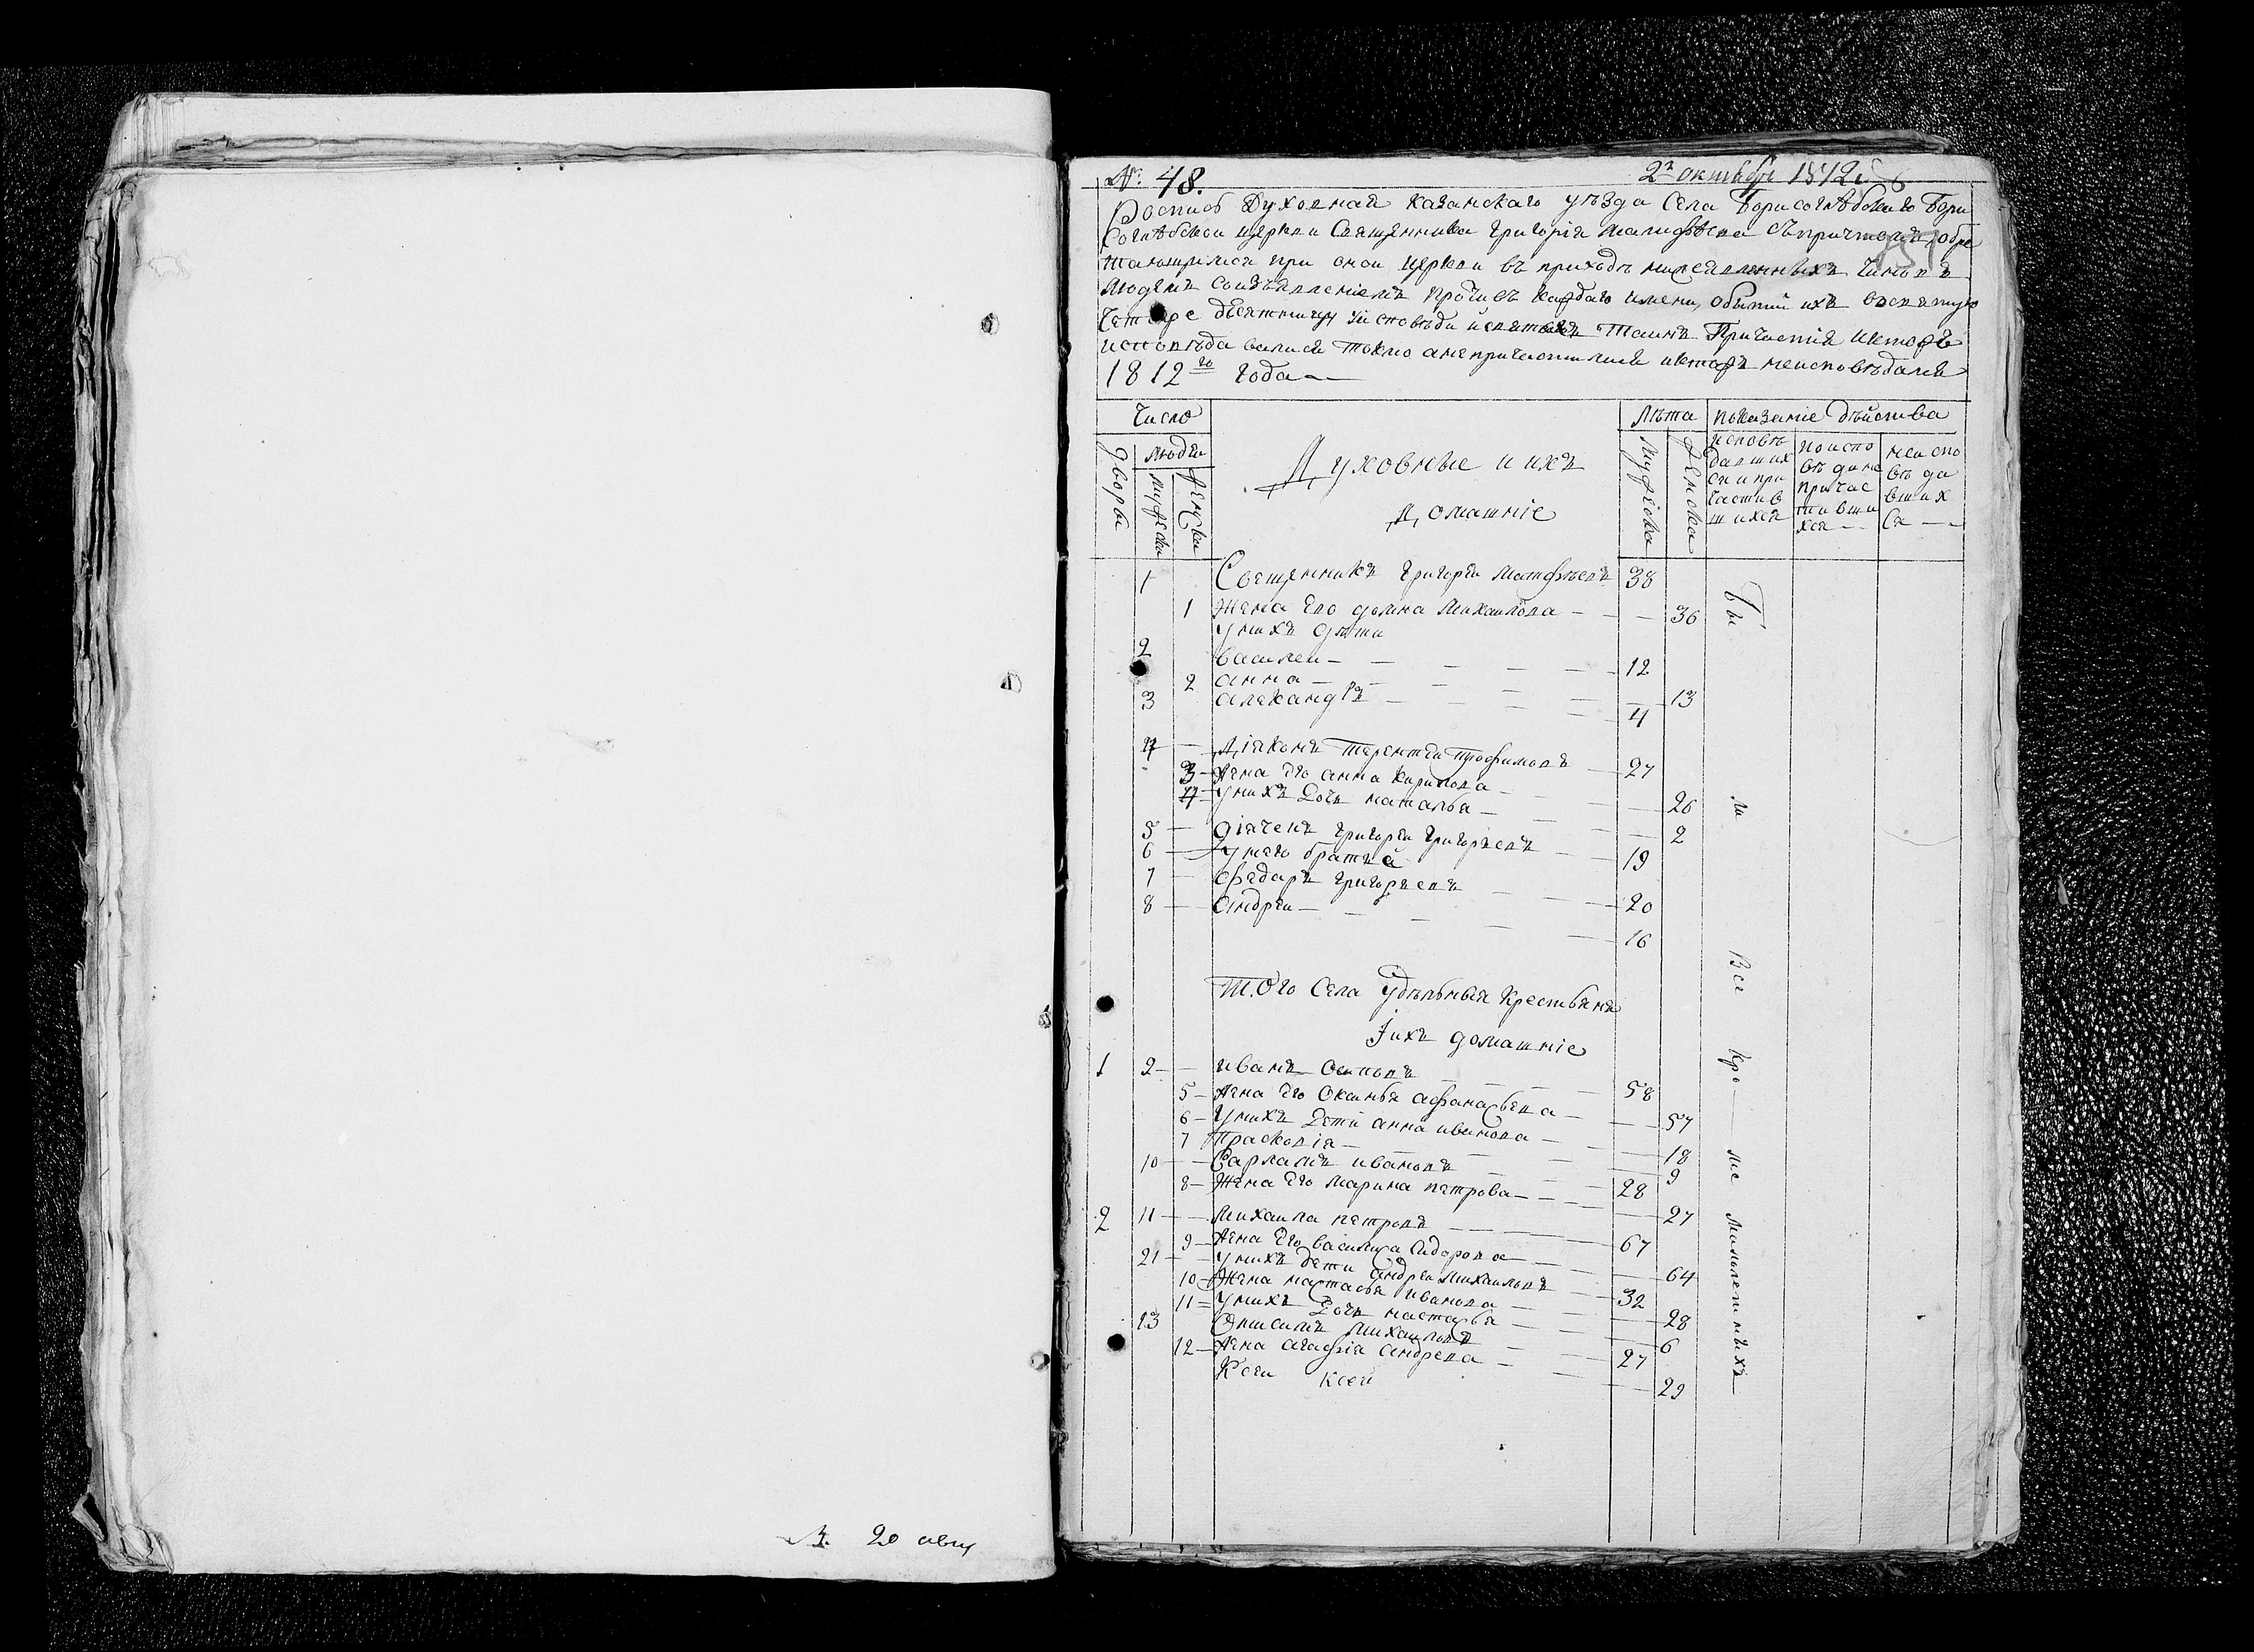 № 20 авгу
№: 48.
2го октября 1812 г. 6
Роспись Духовная Казанскаго уѣзда Села Борисоглѣбскаго Бори
соглѣбской церкви Священника Григорія Матфѣева съ причтомъ, обре
тающимся при онои церкви въ приходѣ
людемъ соизъявленіемъ противъ каждаго имени, обытіи ихъ восвятую
четыре десятницу Уисповѣди исвятыхъ Таинъ Причастія иктожъ
исповѣдалися токмо анепричастилися иктожъ неисповѣдался
1812го года
Число
Лѣта
показаніе дѣйства
дворы
людеи
мужеска
женска
Духовные и ихъ
домашніе
мужеска
женска
исповѣ
давших
ся и при
частив
шихся
поиспо
вѣди не
причас
тивши
хся
неиспо
вѣда
вших
ся
1 Священникъ Григореи Матфѣевъ 38
1 Жена его домна Михаилова 36
Унихъ дѣти
2 василеи 12
2 анна 13
3 александръ 4
4 Діяконъ Терентеи Трофимовъ 27
3 Жена Его анна Кирилова 26
4 Унихъ Дочь наталья 2
5 діячекъ Григореи Григорьевъ 19
6 Унего братья
7 Федаръ Григорьевъ 20
8 андреи 16
Того Села Удѣльныя Крестьяня
Іихъ домашніе
1 9 иванъ Осиповъ 58
5 Жена Его Оксинья афанасьева 57
6 Унихъ Дети анна иванова 18
7 Прасковія 9
10 ивановъ 28
8 Жена Его Марина петрова 27
2 11 Михаила петровъ 67
9 Жена Его василиса Сидорова 64
21 Унихъ дети андреи Михаиловъ 32
10 Жена настасья иванова 28
11 Унихъ Дочь настасья 6
13 Михаиловъ 27
12 Жена агафія андреева 29
Ксеи ксеи
Бы
ли
Все
кро
ме
малолетнихъ